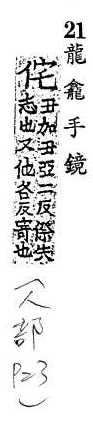 21
龍龕手鏡
侘丑加丑亞二反傺失
志也又他各反寄也
(人部
P23)